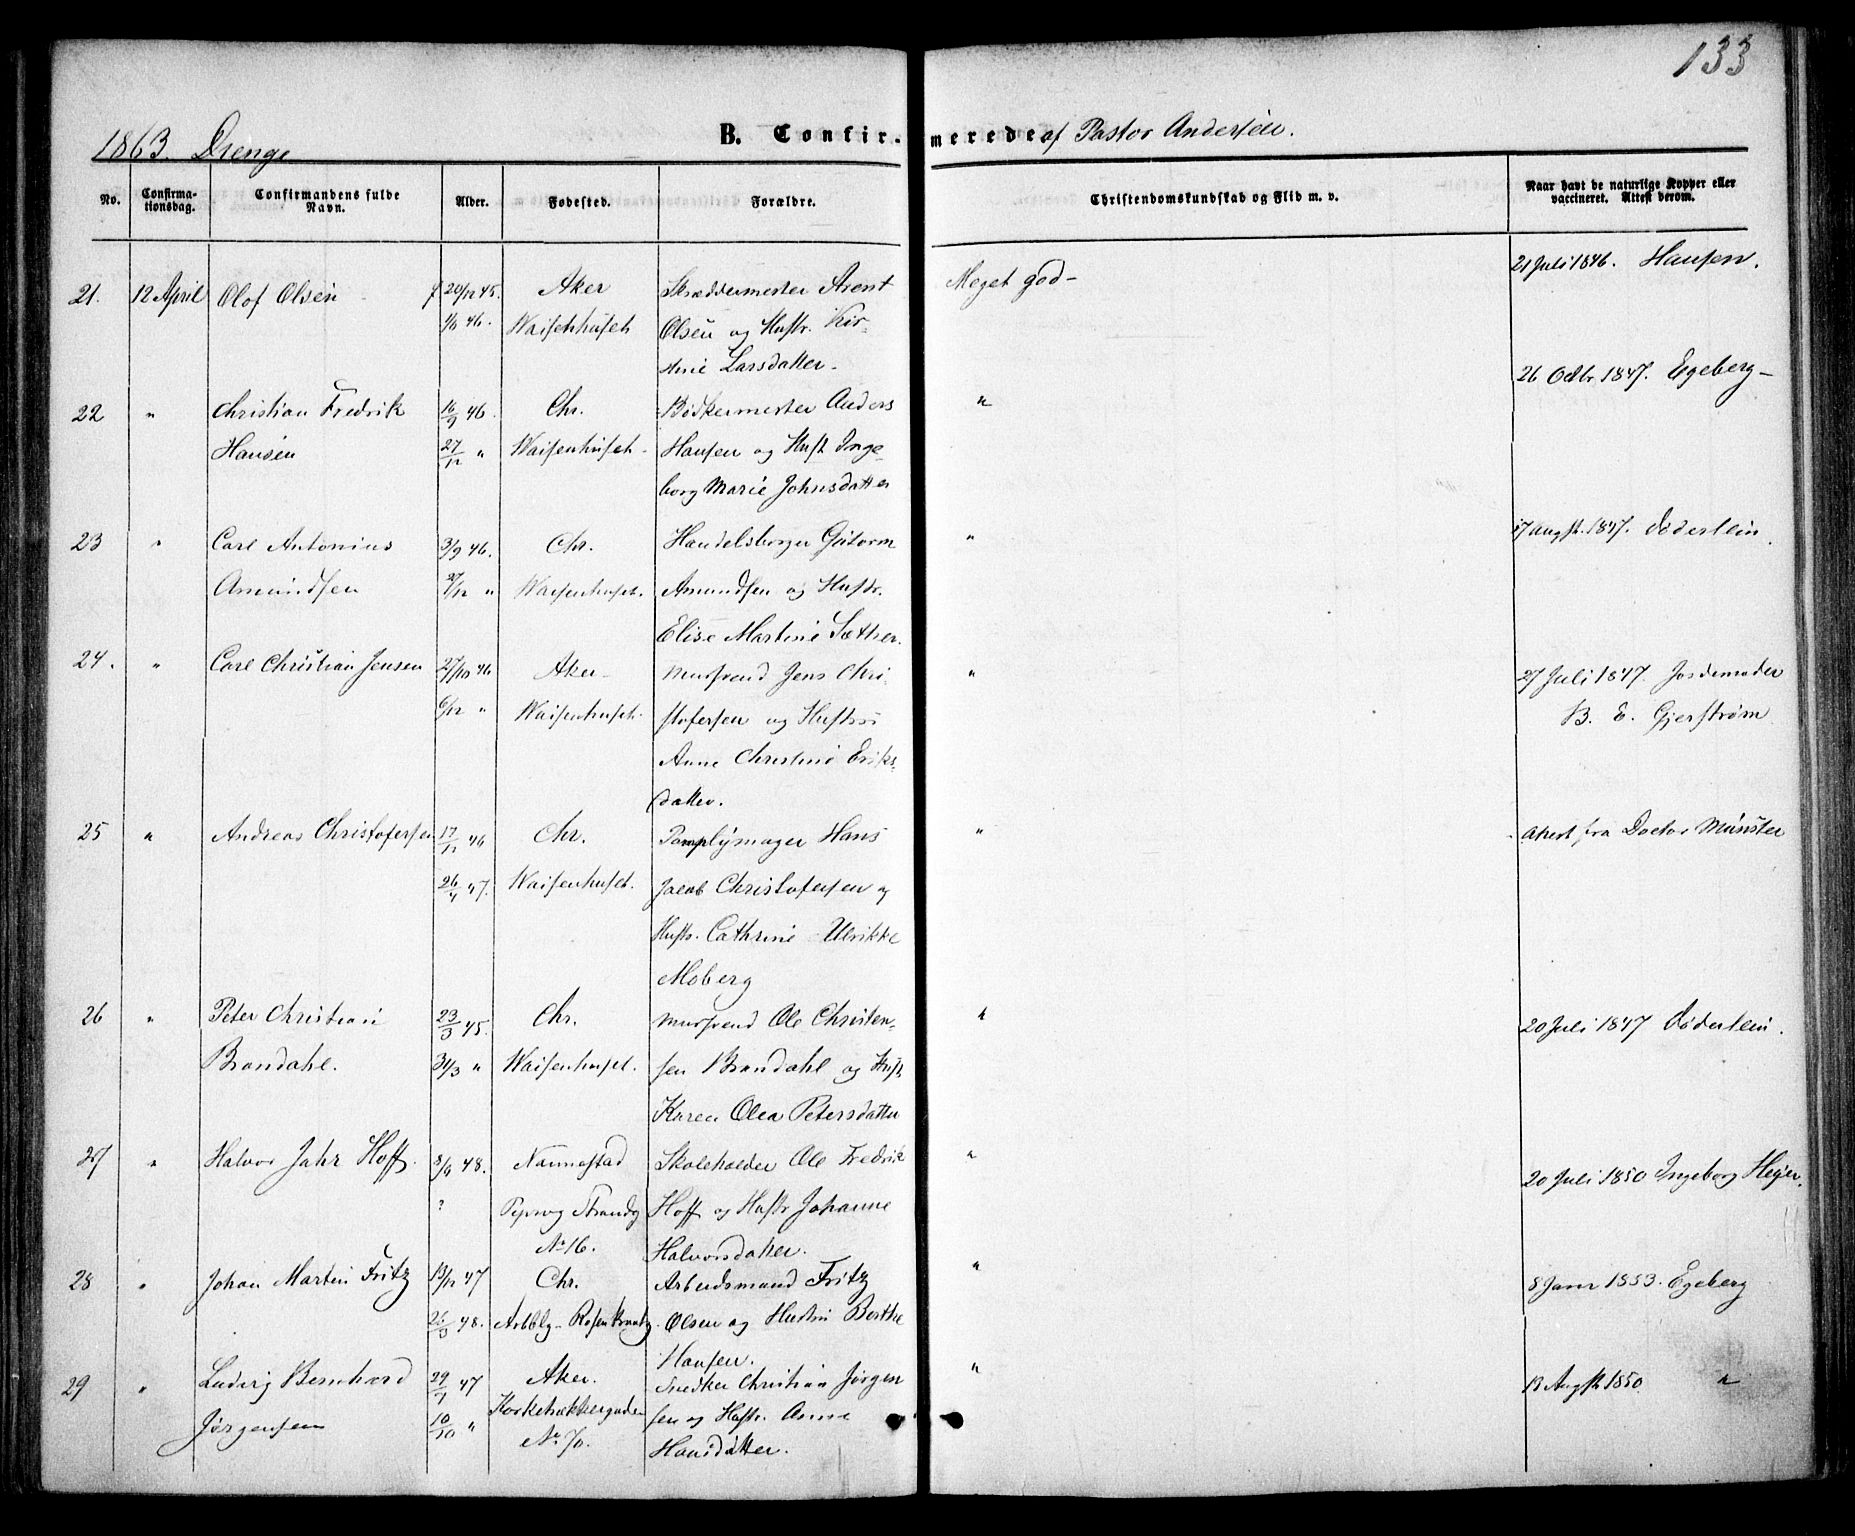 133
1863. Drenge
B. Confirmerede af Pastor Andersen.
No. Confirmationsdag. Confirmandens fulde Navn. Alder. Fødested. Forældre. Christendomskundskab og Flid m. v. Naar havt de naturlige Kopper eller vaccineret. Attest derom.
21. 12 April Olof Olsen f 20/12 45. Aker Skræddermester Arent Meget god- 21 Juli 1846. Hansen.
1/6 46. Waisenhuset Olsen og Hustr. Kir-
stine Larsdatter.
22 " Christian Fredrik 16/9 46. Chr. Bødkermester Anders " 26 Octbr 1847. Egeberg-
Hansen 27/12 " Waisenhuset- Hansen og Hust Inge-
borg Marie Johnsdatter
23 " Carl Antonius 3/9 46. Chr. Handelsborger Guttorm " 17 Augst. 1847. Døderlein.
Amundsen 27/12 " Waisenhuset. Amundsen og Hustr.
Elise Martine Sæther.
24. " Carl Christian Jensen 27/10 46 Aker- Mursvend Jens Chri- " 27 Juli 1847. Jordemoder
6/12 " Waisenhuset. stofersen og Hustru B. E. Gjerstrøm
Anne Christine Eriks-
datter.
25 " Andreas Christofersen 17/11 46 Chr. Hans " Attest fra Doctor Münster
26/4 47. Waisenhuset. Jacob Christofersen og
Hustr. Cathrine Ulrikke
Moberg
26 " Peter Christian 23/3 45. Chr. Mursvend Ole Christen- " 20 Juli 1847 Døderlein.
Brandahl. 31/3 " Waisenhuset. sen Brandahl og Hust
Karen Olea Petersdatter
27 " Halvor Jahr Hoff. 8/9 48. Nannestad Skoleholder Ole Fredrik " 20 Juli 1850 Ingeborg Hejer.
? Pipervig Strandg Hoff og Hustr Johanne
No 16. Halvorsdatter.
28 " Johan Martin Fritz 13/12 47 Chr. Arbeidsmand Fritz " 8 Janr 1853. Egeberg
26/3 48. Olsen og Hustru Berthe
Hansen.
29 " Ludvig Bernhard 29/7 47 Aker. Snedker Christian Jørgen " 13 Augst 1850 "
Jørgensen 10/10 " Korketrækkergaden sen og Hustr. Anne
No 70. Hansdatter.